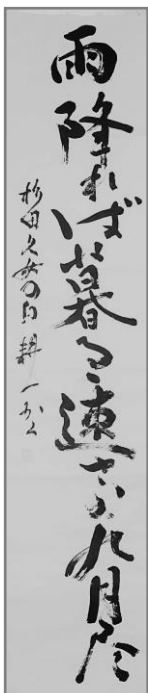 雨降れば暮るゝ速さよ九月尽
杉田久女の句 耕一